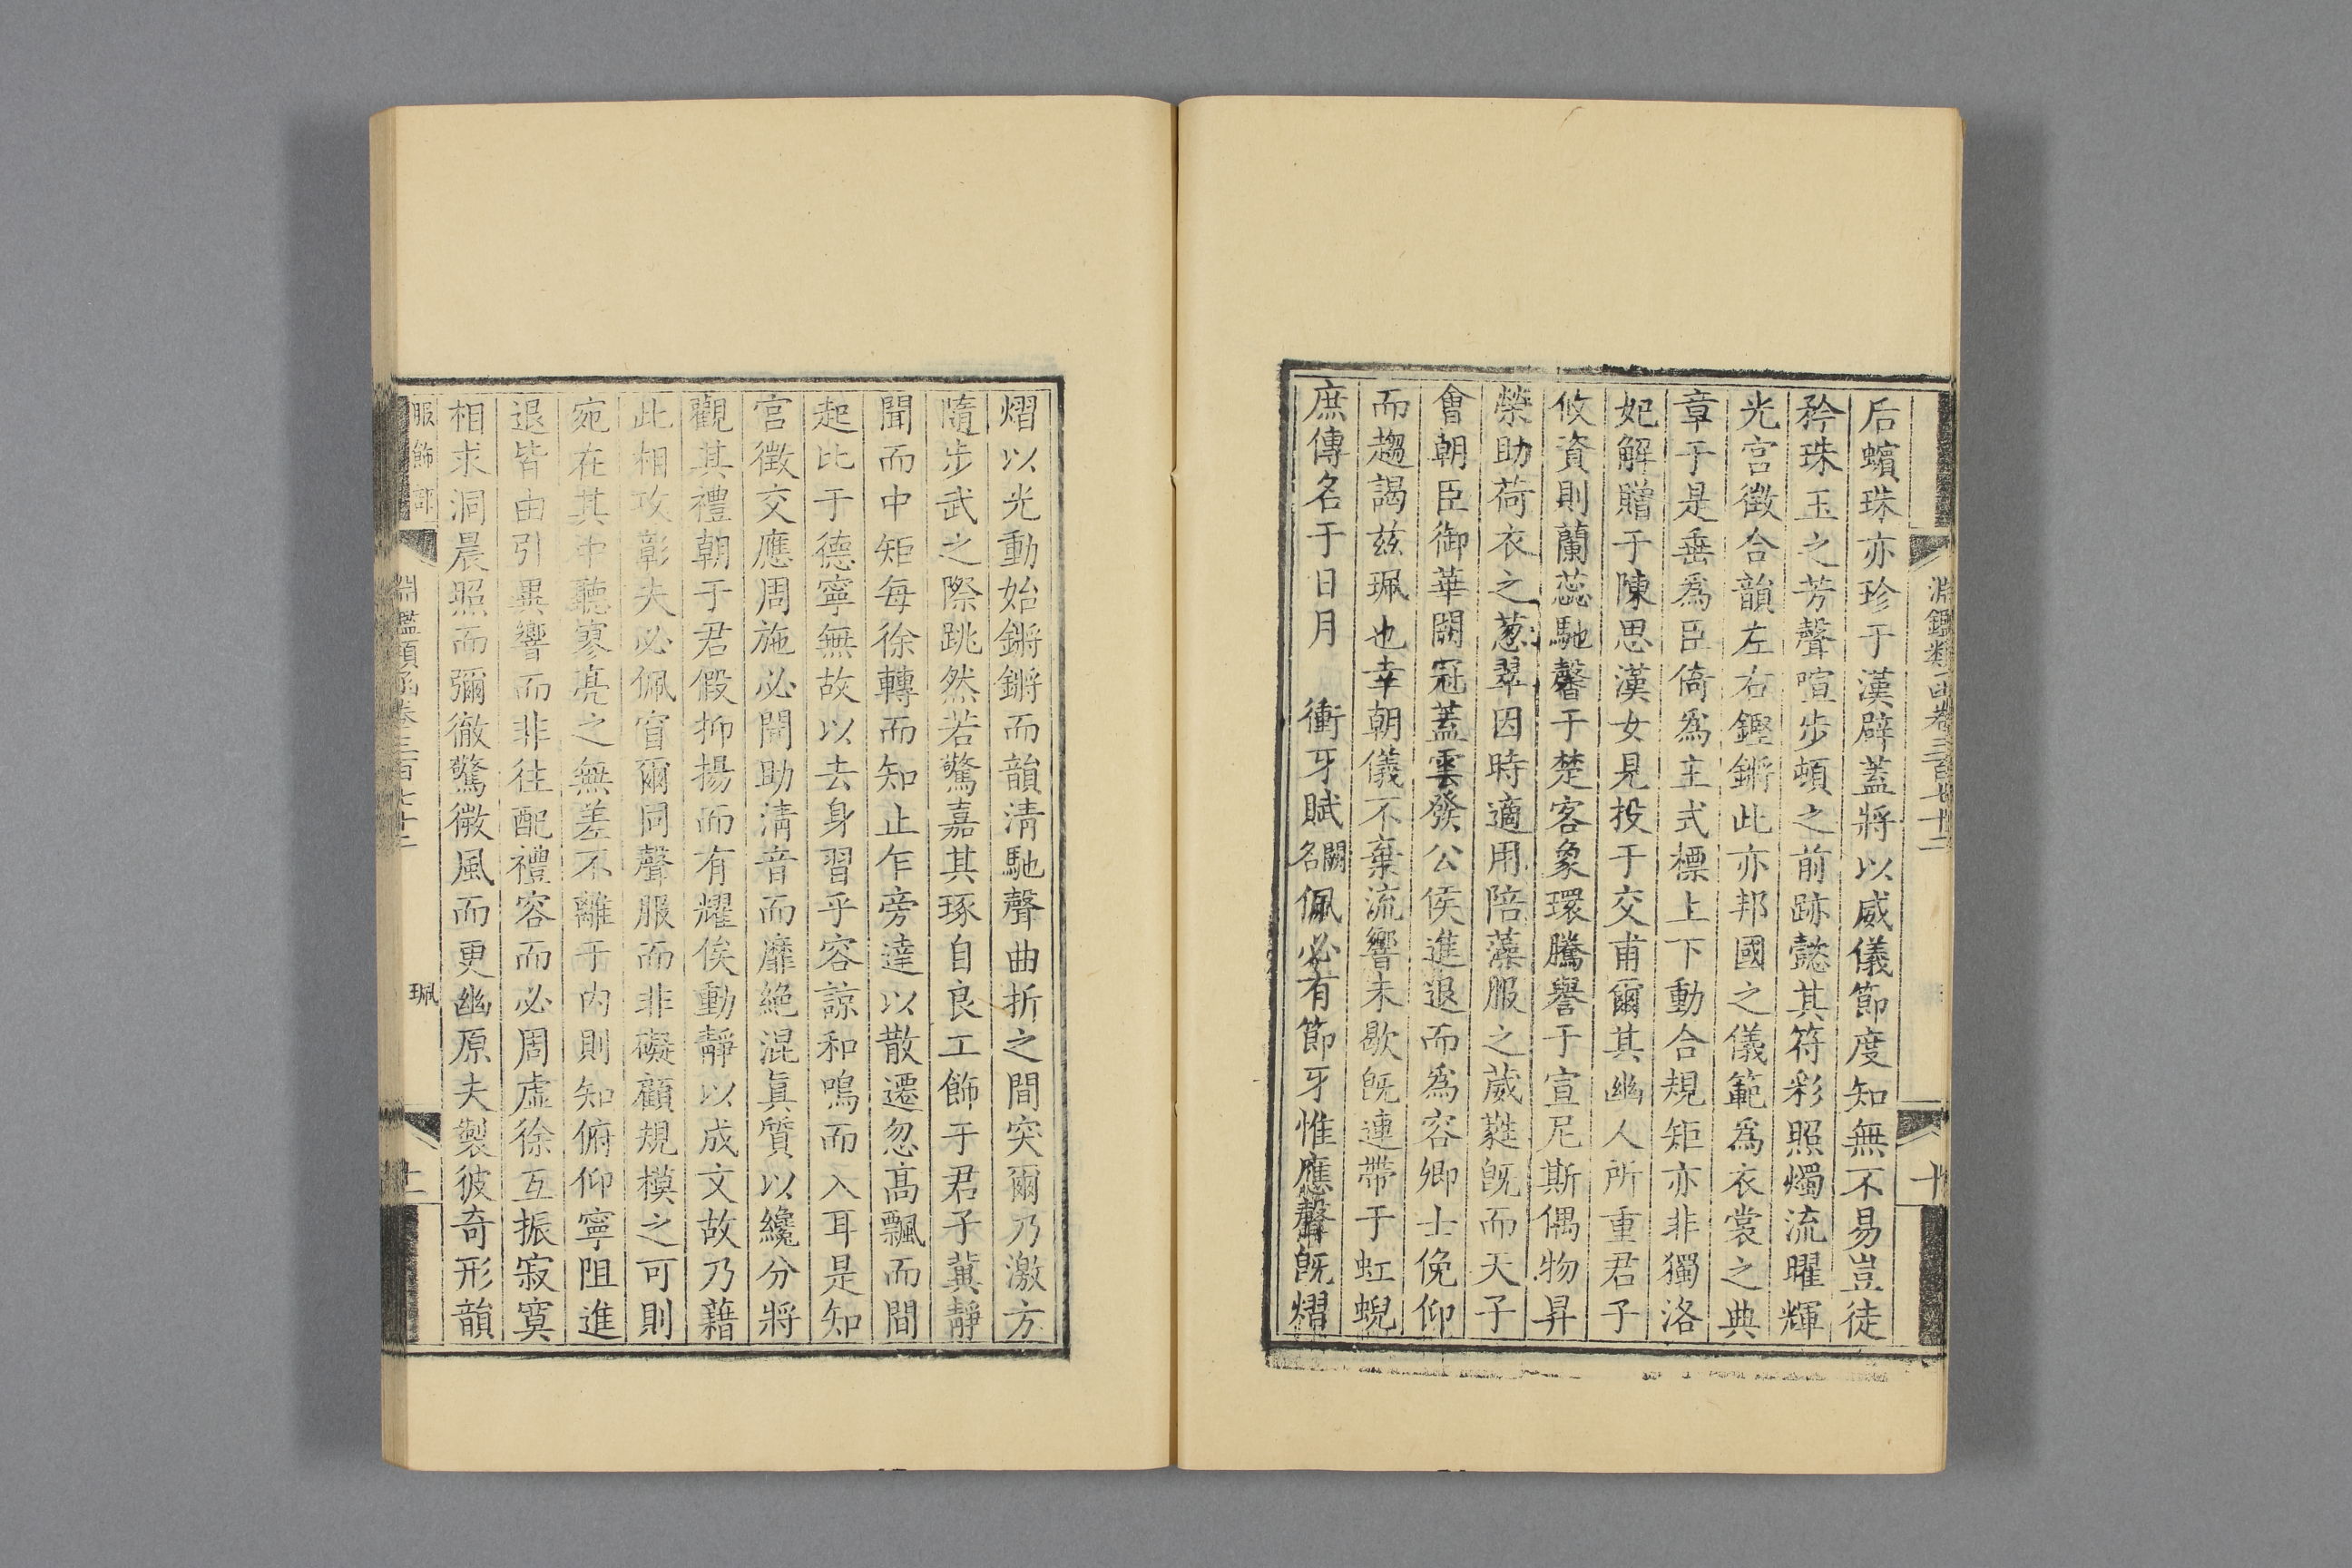 淵鑑類函卷三百七十二
十
后蠙珠亦珍于漢辟蓋將以威儀節度知無不易豈徒
矜珠玉之芳聲喧步頓之前跡懿其符彩照燭流曜輝
光宮徵合韻左右鏗鏘此亦邦國之儀範爲衣裳之典
章于是垂爲臣倚爲主式標上下動合規矩亦非獨洛
妃解贈于陳思漢女見投于交甫爾其幽人所重君子
攸資則蘭蕊馳馨于楚客象環騰譽于宣尼斯偶物昇
榮助荷衣之蔥翠因時適用陪藻服之葳蕤旣而天子
會朝臣御華闕冠蓋雲發公侯進退而爲容卿士俛仰
而趨謁兹珮也幸朝儀不棄流響未歇旣連帶于虹蜺
庶傳名于日月 衝牙賦闕名佩必有節牙惟應聲旣熠
熠以光動始鏘鏘而韻清馳聲曲折之間突爾乃激方
隨步武之際跳然若驚嘉其琢自良工飾于君子冀靜
聞而中矩每徐轉而知止乍旁達以散遷忽高飄而間
起比于德寧無故以去身習乎容諒和鳴而入耳是知
宮徵交應周施必聞助清音而靡絕混眞質以纔分將
觀其禮朝于君假抑揚而有耀俟動靜以成文故乃藉
此相攻彰夫必佩窅爾同聲服而非礙顧規模之可則
宛在其中聽寥亮之無差不離于內則知俯仰寧阻進
退皆由引異響而非往配禮容而必周虛徐互振寂寞
相求洞晨照而彌徹驚微風而更幽原夫製彼奇形韻
服飾部
淵鑑類函卷三百七十二
珮
十一